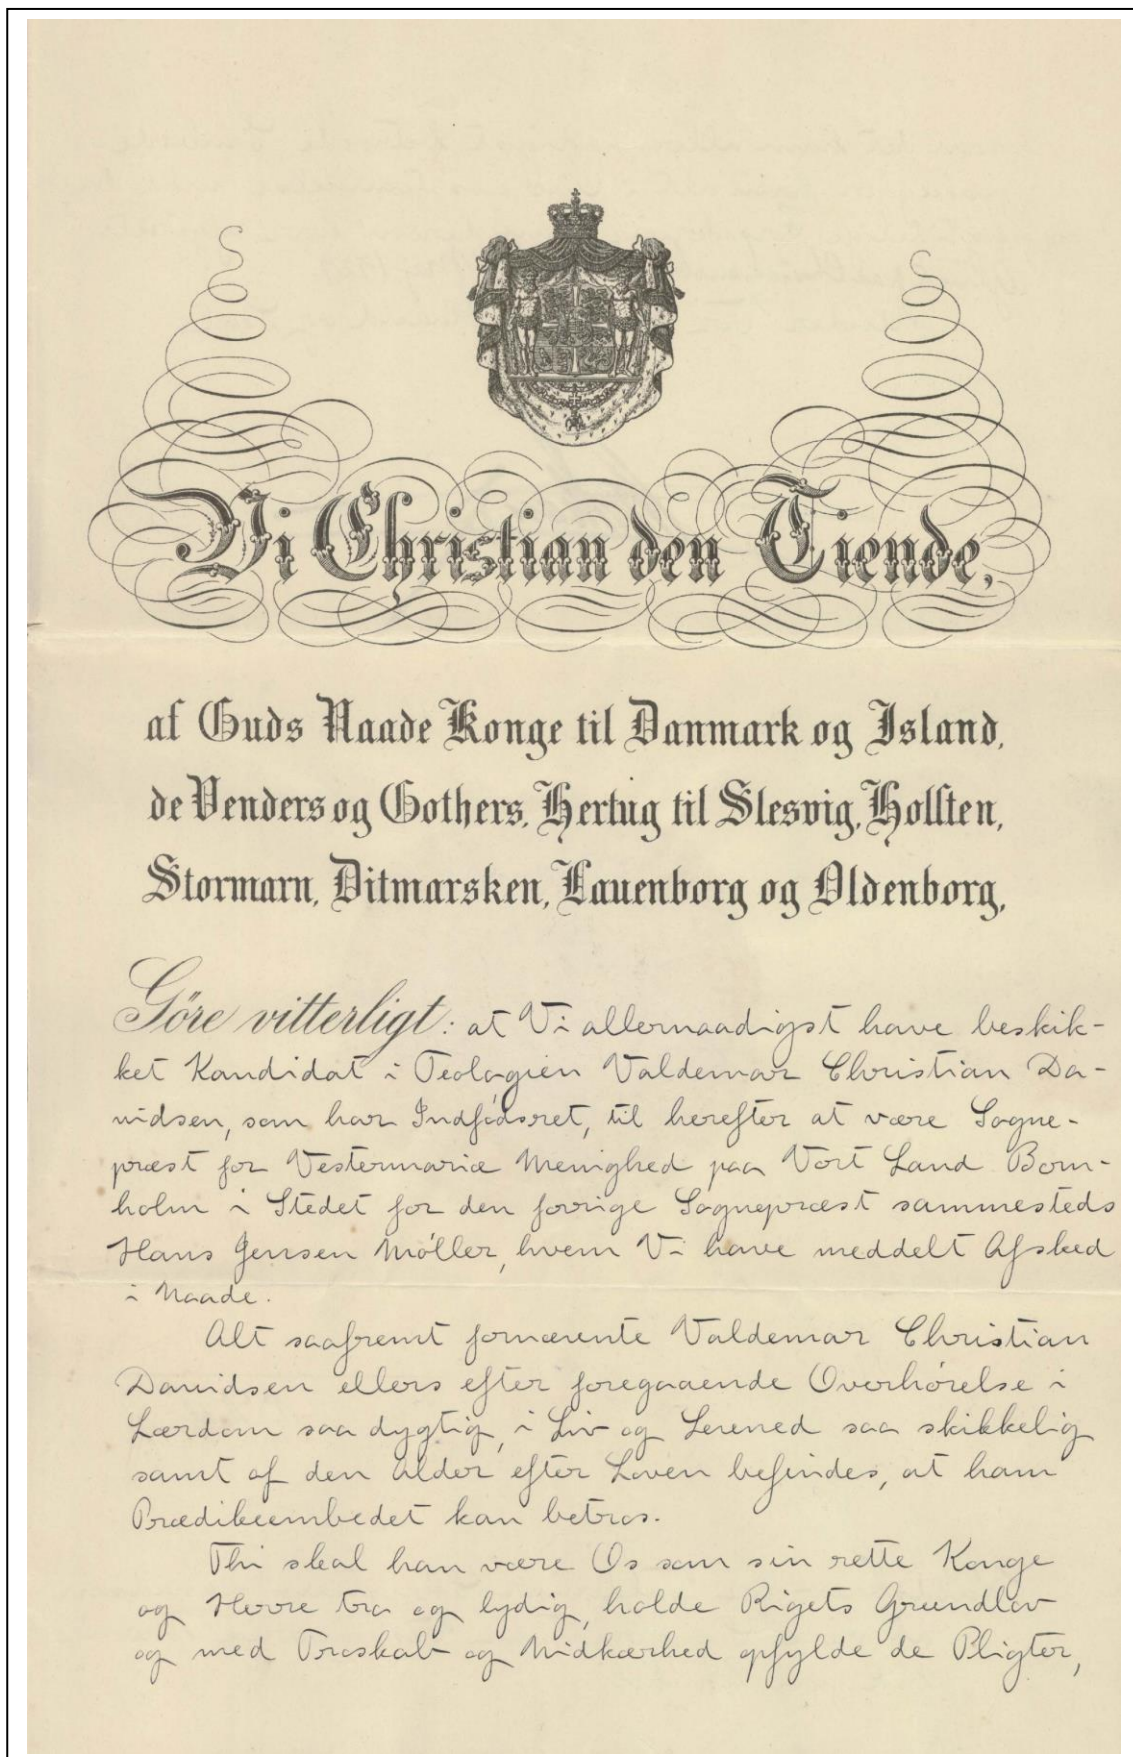 Vi Christian den Tiende,
af Guds Naade Konge til Danmark og Island,
de Venders og Gothers, Hertug til Slesvig, Holsten,
Stormarn, Ditmarsken, Lauenborg og Oldenborg,
Göre vitterligt: at Vi allernaadigst have beskik-
ket Kandidat i Teologien Valdemar Christian Da-
vidsen, som har Indfødsret, til herefter at være Sogne-
præst for Vestermariæ Menighed paa Vort Land Born-
holm i Stedet for den forrige Sognepræst sammesteds
Hans Jensen Møller, hvem Vi have meddelt Afsked
i Naade.
Alt saafremt fornævnte Valdemar Christian
Davidsen ellers efter foregaaende Overhørelse i
Lærdom saa dygtig, i Liv og Levned saa skikkelig
samt af den Alder efter Loven befindes, at ham
Prædikeembedet kan betros.
Thi skal han være Os som sin rette Konge
og Herre tro og lydig, holde Rigets Grundlov
og med Troskab og Nidkærhed opfylde de Pligter,